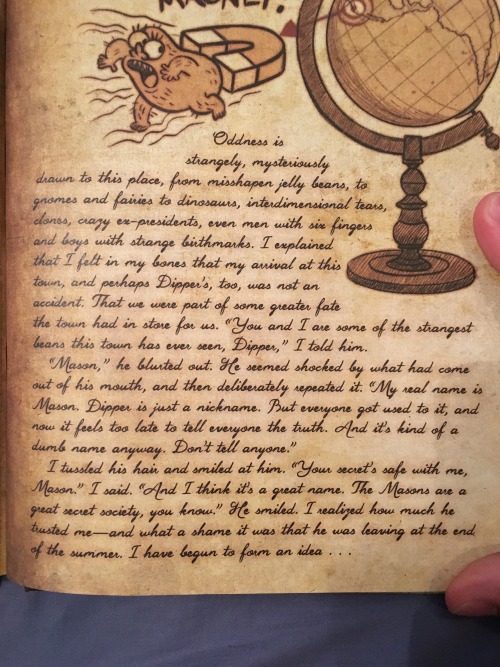 MAGNET!
Oddness is
strangely, mysteriously
drawn to this place, from misshapen jelly beans, to
gnomes and fairies to dinosaurs, interdimensional tears,
clones, crazy ex-presidents, even men with six fingers
and boys with strange birthmarks. I explained
that I felt in my bones that my arrival at this
town, and perhaps Dipper's, too, was not an
accident. That we were part of some greater fate
the town had in store for us. "You and I are some of the strangest
beans this town has ever seen, Dipper," I told him.
"Mason," he blurted out. He seemed shocked by what had come
out of his mouth, and then deliberately repeated it. "My real name is
Mason. Dipper is just a nickname. But everyone got used to it, and
now it feels too late to tell everyone the truth. And it's kind of a
dumb name anyway. Don't tell anyone."
I tussled his hair and smiled at him. "Your secret's safe with me,
Mason." I said. "And I think it's a great name. The Masons are a
great secret society, you know." He smiled. I realized how much he
trusted me—and what a shame it was that he was leaving at the end
of the summer. I have begun to form an idea . . .